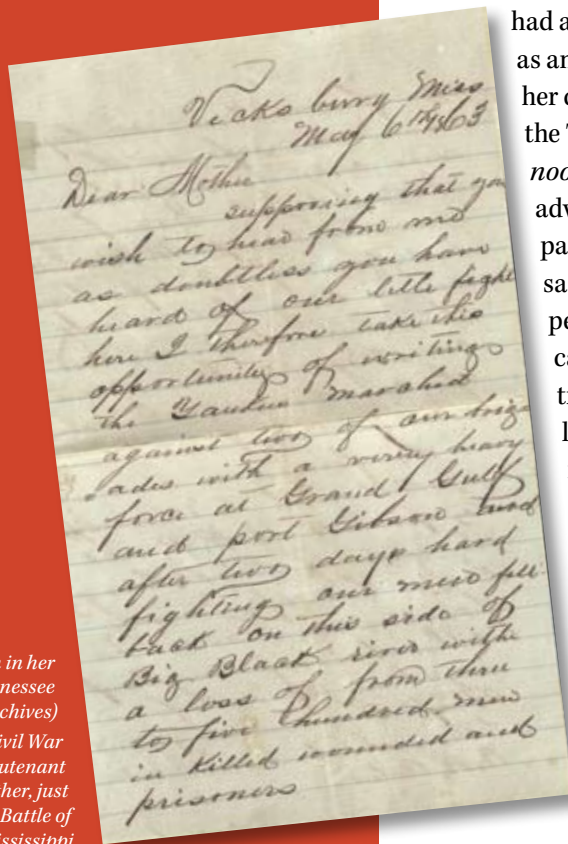 Vicksburg Miss
May 6th 1863
Dear Mother
supposing that you
wish to hear from me
as doubtless you have
heard of our little fight
here I therefore take this
opportunity of writing
the Yankees marched
against two of our brig
ades with a verry heavy
force at Grand Gulf
and port Gibson and
after two days hard
fighting our men fell
back on this side of
Big Black river with
a loss of from three
to five hundred men
in killed wounded and
prisoners
had a
as an
her
the
noo
adv
pa
sa
pe
ca
ti
l
in her
nessee
chives)
ivil War
utenant
ther, just
Battle of
ississippi